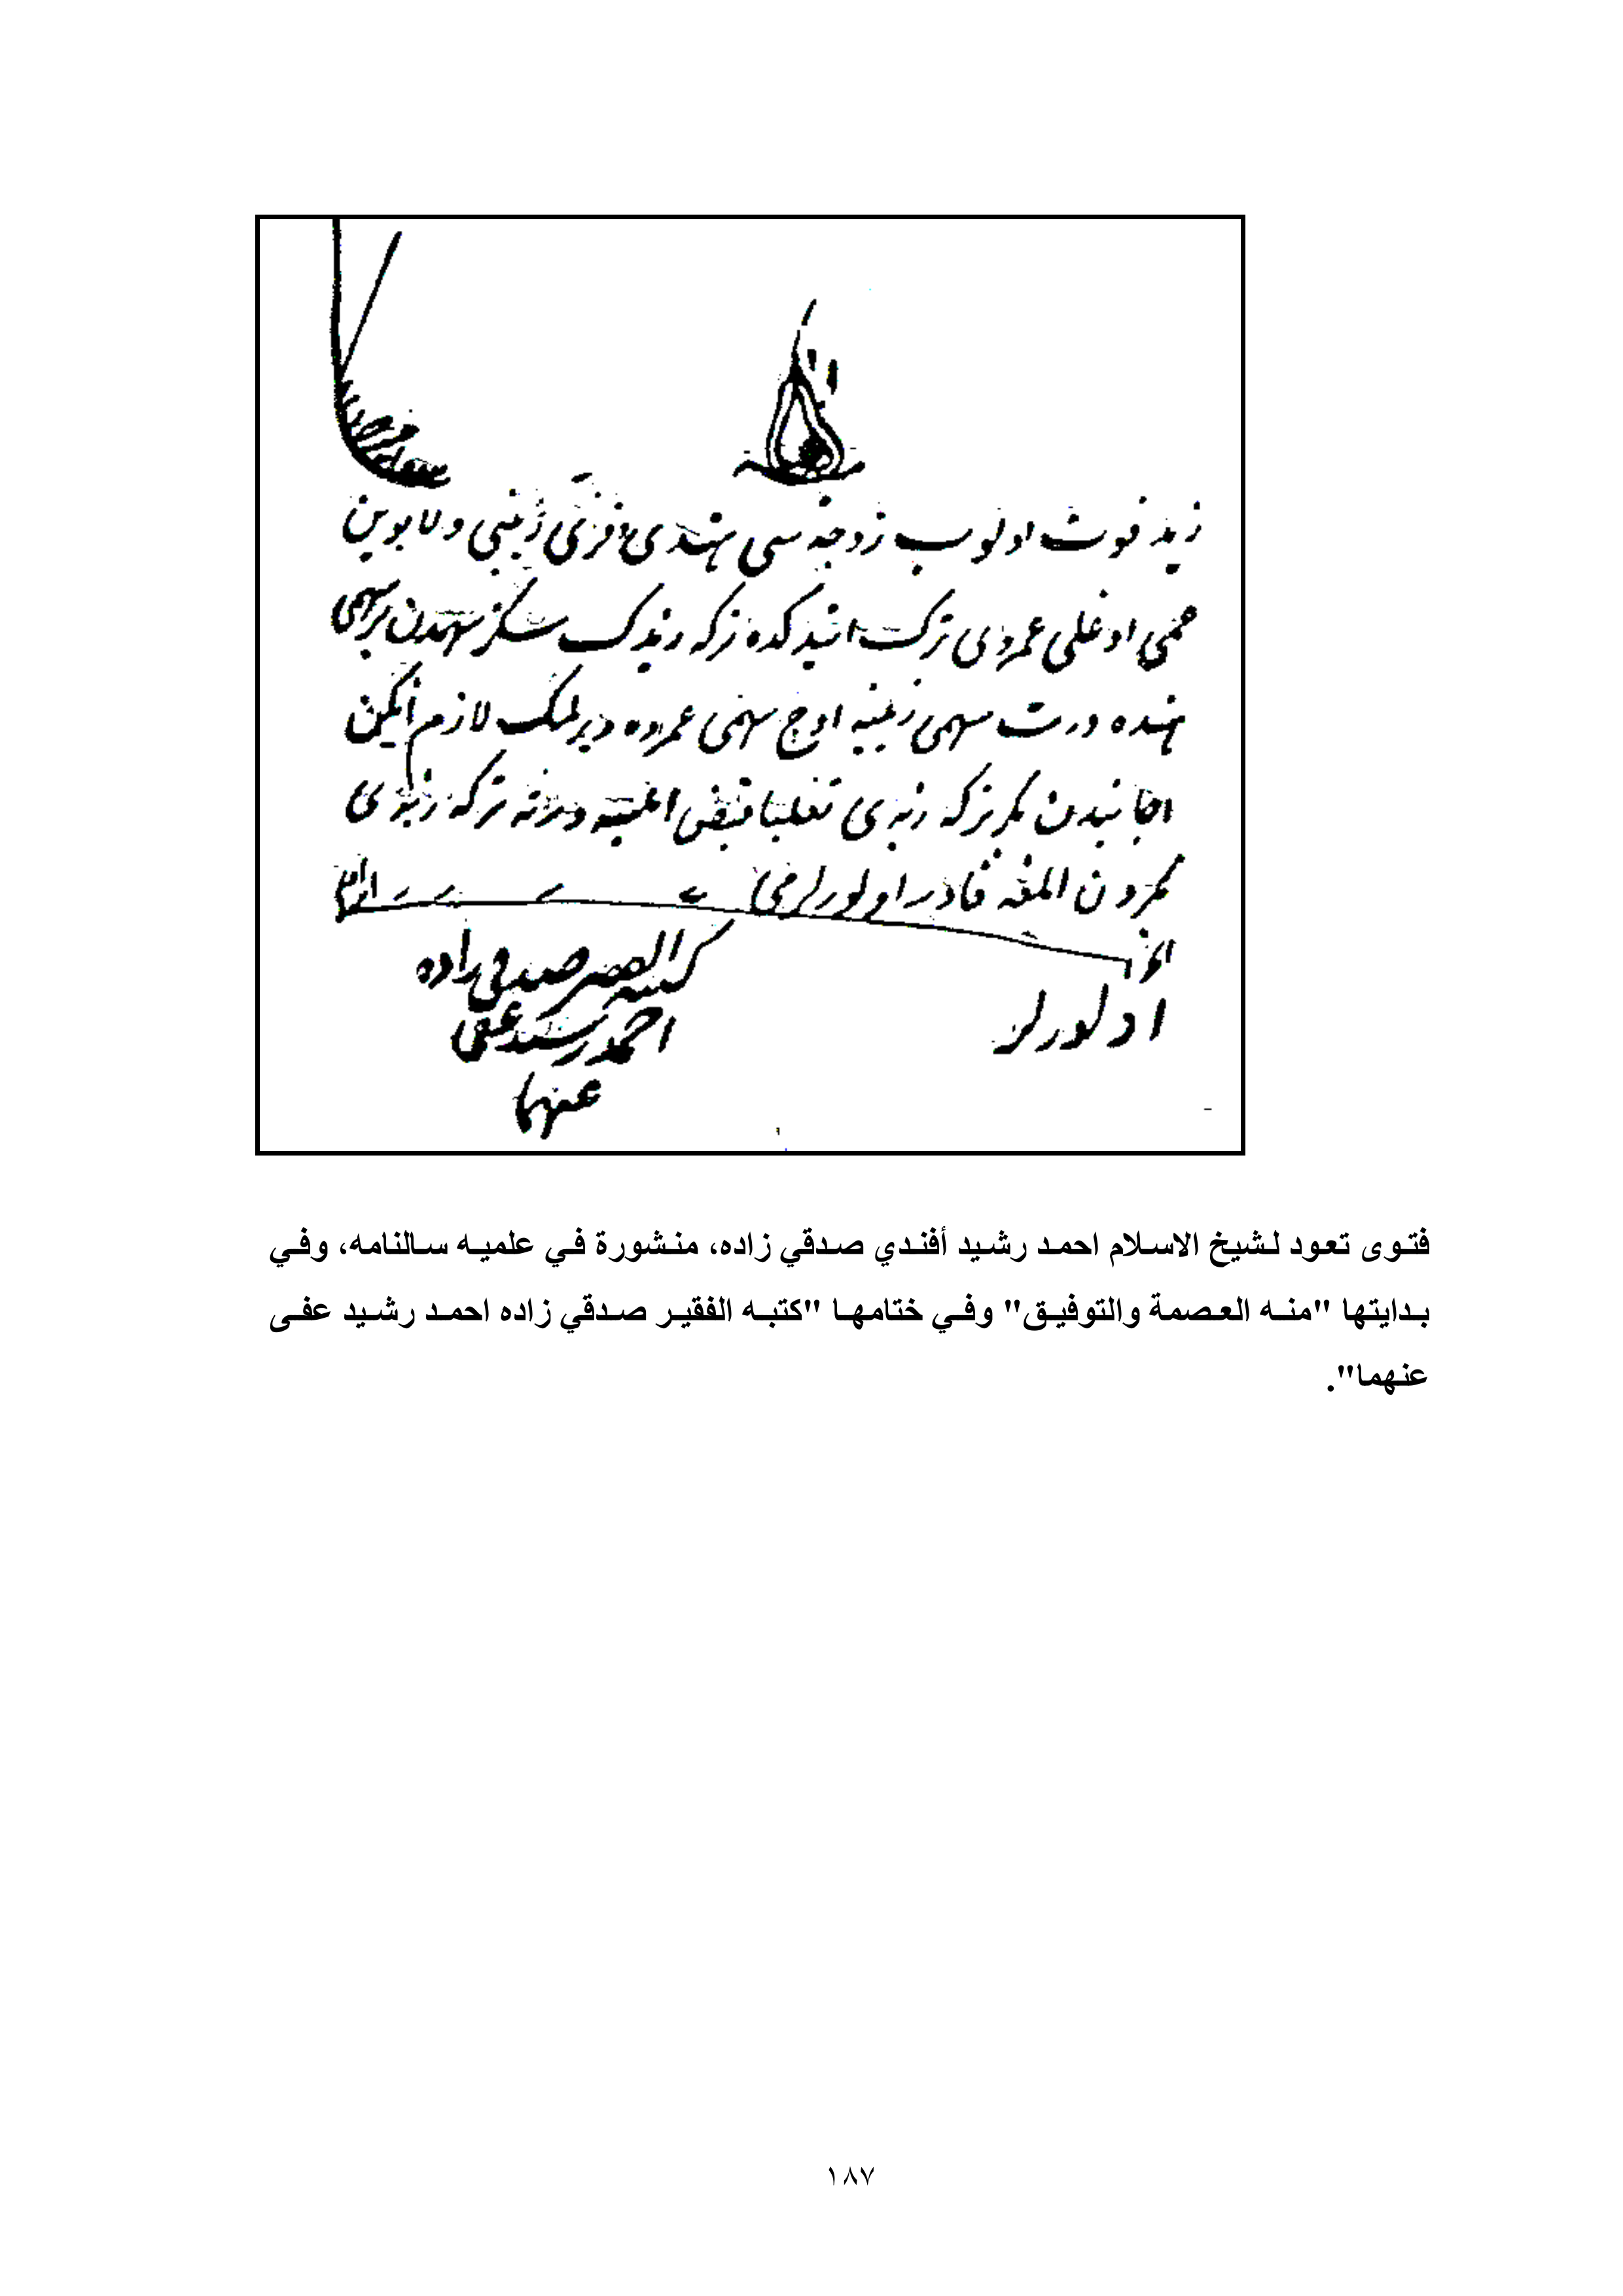 زيد فوت اولوب زوجه سى هندى و قزى زينبى و لابوين
عمى اوغلى عمروى ترك ايتدكده تركه زيدك سكز سهمدن برر سهمى
هنده درت سهمى زينبه اوچ سهمى عمروه ديرلمك لازم ايكن
اجانبدن بكر تركه زيدى تغلبا قبض ايلسه ورثه تركه زيدى
بكردن المغه قادر اولورلرمى
الجواب
اولورلر
كتبه الفقير صدقى زاده
احمد رشيد عفى
عنهما
فتوى تعود لشيخ الاسلام احمد رشيد أفندي صدقي زاده، منشورة في علميه سالنامه، وفي
بدايتها "منه العصمة والتوفيق" وفي ختامها "كتبه الفقير صدقي زاده احمد رشيد عفى
عنهما".
١٨٧